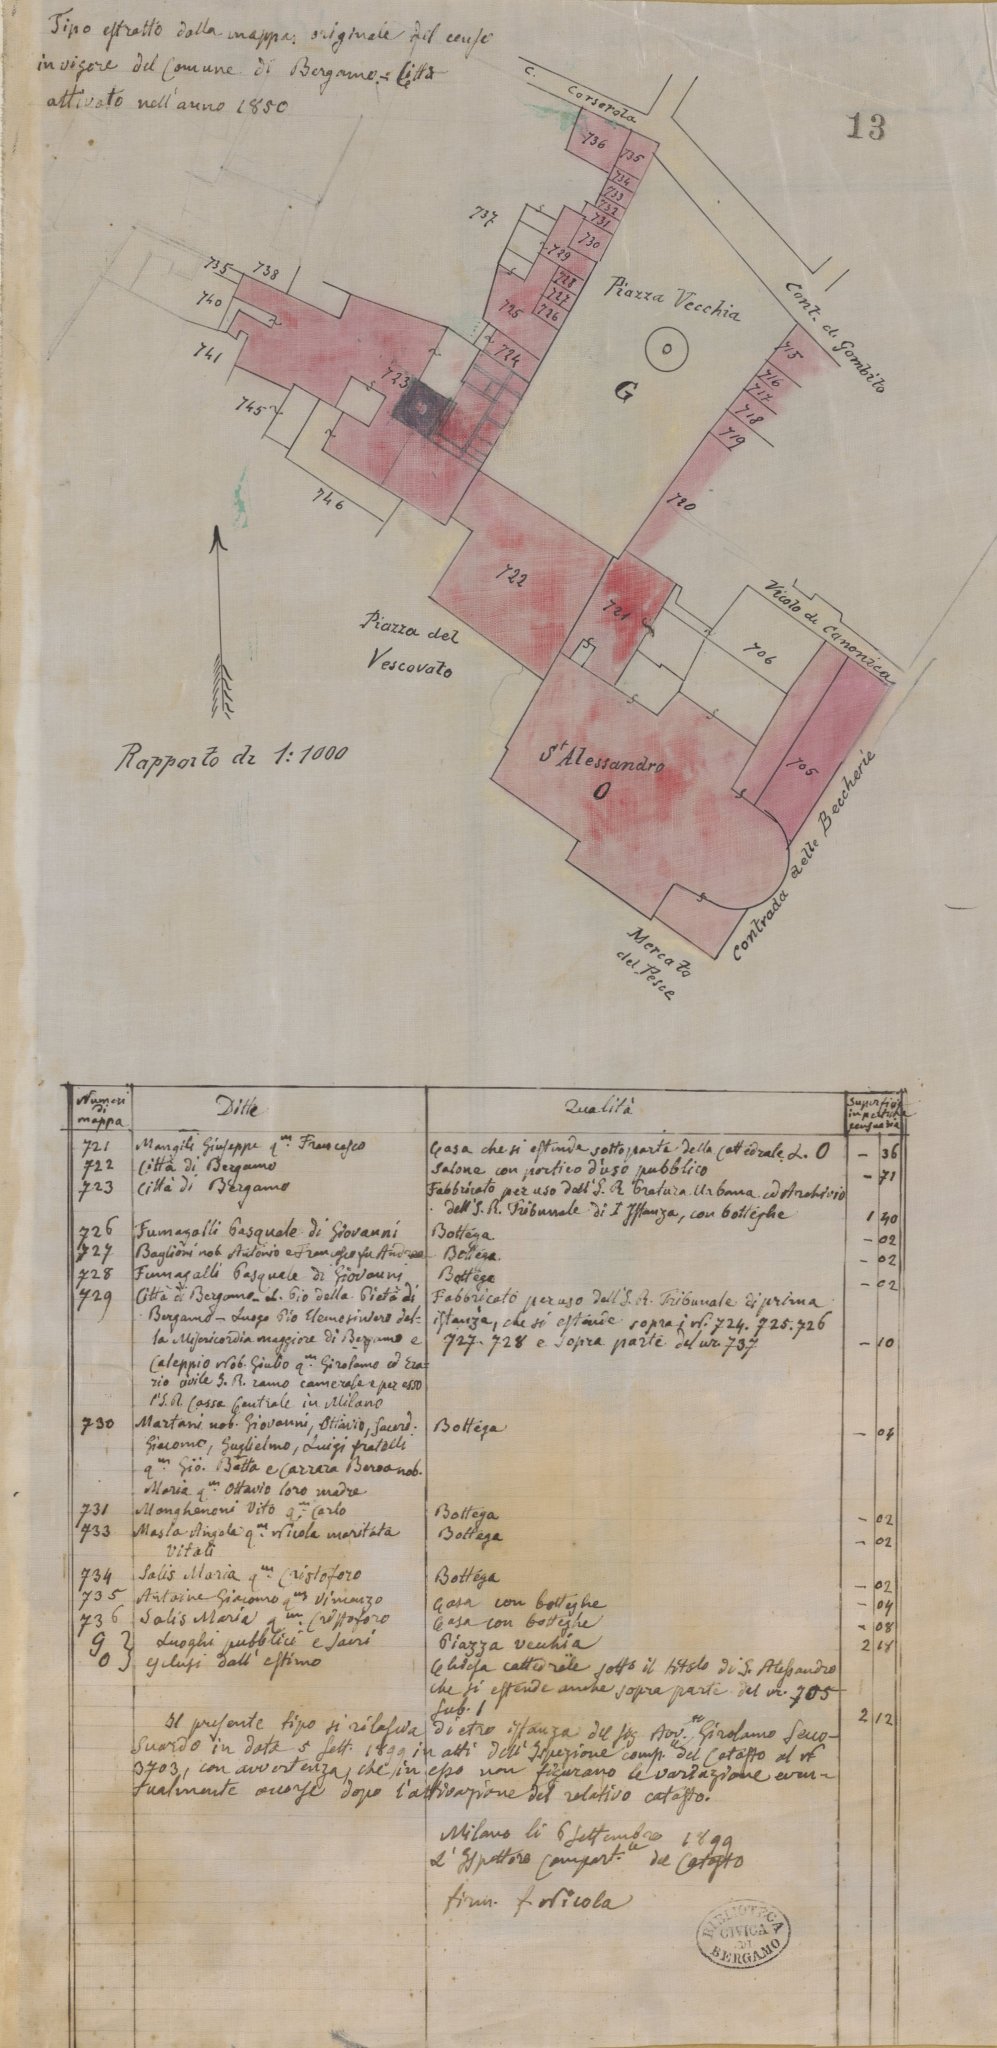 Tipo estratto dalla mappa originale del censo
in vigore del Comune di Bergamo = Città
attivato nell'anno 1850
13
C. Corserola
736
735
734
733
732
731
730
737
729
728
727
726
725
724
Piazza Vecchia
O
G
Cont. di Gombito
735
738
740
741
723
745
746
715
716
717
718
719
720
722
721
Piazza del
Vescovato
Vicolo di Canonica
706
705
St Alessandro
O
Rapporto di 1:1000
Contrada delle Beccherie
Mercato
del Pesce
Numeri di mappa
Ditte
Qualità
Superficie in pertiche censuarie
721 Margili Giuseppe qm Francesco Casa che si estende sotto parte della Cattedrale L. O – 36
722 Città di Bergamo Salone con portico d'uso pubblico – 71
723 Città di Bergamo Fabbricato per uso dell'I. R. Pretura Urbana ed Archivio
dell'I. R. Tribunale di I Istanza, con botteghe 1 40
726 Fumagalli Pasquale di Giovanni Bottega – 02
727 Baglioni nob. Antonio e Francesco fu Andrea Bottega – 02
728 Fumagalli Pasquale di Giovanni Bottega – 02
729 Città di Bergamo – L. Pio della Pietà di Fabbricato per uso dell'I. R. Tribunale di prima
Bergamo – Luogo Pio Elemosiniero del- istanza, che si estende sopra i Nri 724. 725. 726
la Misericordia maggiore di Bergamo e 727. 728 e sopra parte del nr. 737 – 10
Caleppio Nob. Giulio qm Girolamo ed Era-
rio civile I. R. ramo camerale e per esso
l'I. R. Cassa Centrale in Milano
730 Martani nob. Giovanni, Ottavio, Sacerd. Bottega – 04
Giacomo, Guglielmo, Luigi fratelli
qm Gio. Batta e Carrara Beroa nob.
Maria qm Ottavio loro madre
731 Manghenoni Vito qm Carlo Bottega – 02
733 Masla Angela qm Nicola maritata Bottega – 02
Vitali
734 Salis Maria qm Cristoforo Bottega – 02
735 Antoine Giacomo qm Vimanzo Casa con botteghe – 04
736 Salis Maria qm Cristoforo Casa con botteghe – 08
G } Luoghi pubblici e sacri Piazza vecchia 2 18
O } esclusi dall'estimo Chiesa cattedrale sotto il titolo di S. Alessandro
che si estende anche sopra parte del nr. 705
sub. 1 2 12
Il presente tipo si rilascia dietro istanza del Sig. Avv. Girolamo Seco-
Suardo in data 5 Sett. 1899 in atti dell'Ispezione comp. del Catasto al N
3703, con avvertenza, che in esso non figurano le variazione even-
tualmente occorse dopo l'attivazione del relativo catasto.
Milano li 6 Settembre 1899
L' Ispettore Compart.le del Catasto
firm. f. Nicola
BIBLIOTECA
CIVICA
DI
BERGAMO